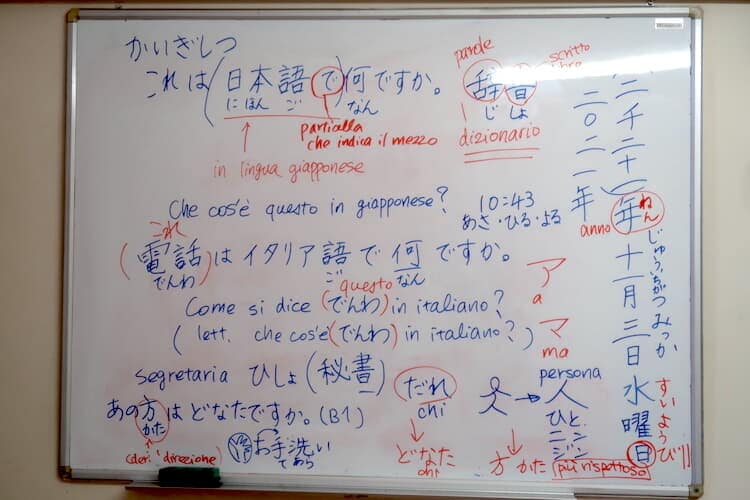 かいぎしつ
これは(日本語で)何ですか。
にほん ご なん
particella
che indica il mezzo
in lingua giapponese
parole
scritto
libro
辞書
じ しょ
dizionario
Che cos'è questo in giapponese?
10:43
あさ・ひる・よる
これ
(電話)はイタリア語で何ですか。
でんわ ご なん
questo
Come si dice (でんわ) in italiano?
(lett. che cos'è (でんわ) in italiano?)
ア
a
マ
ma
segretaria ひしょ(秘書)
あの方はどなたですか。(B1)
かた
direzione)
お手洗い
てあら
だれ
chi
どなた
chi
persona
人
ひと
ニン
ジン
方 かた più rispettoso
二〇二一年
anno
二千二十一年十一月三日水曜日
ねん
じゅういちがつ みっか
すいようび